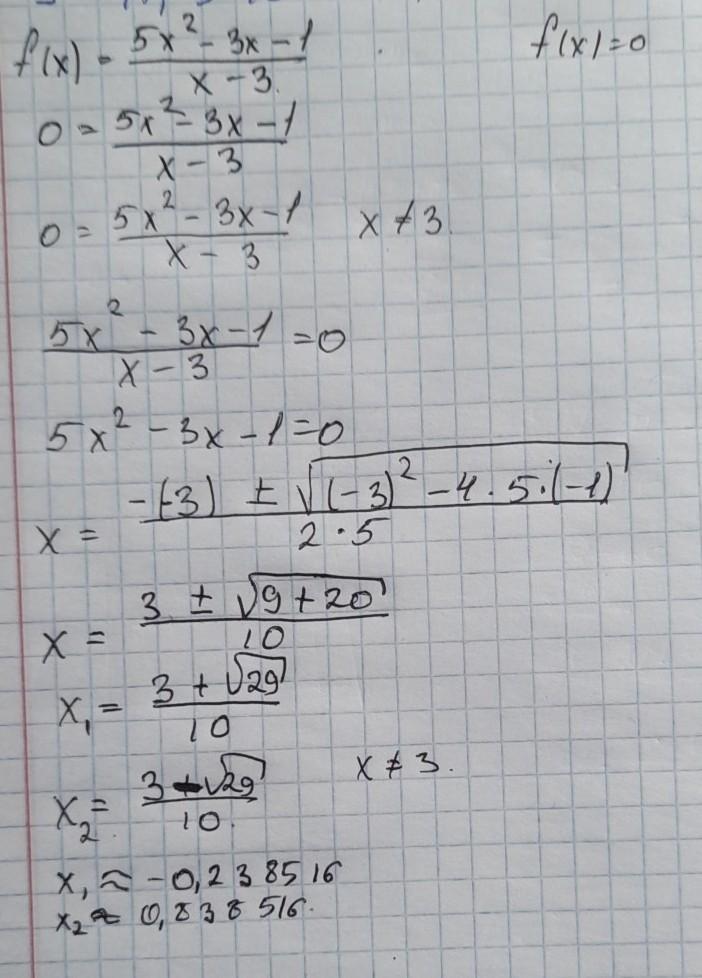 f(x) = (5x² - 3x - 1)/(x - 3) f(x) = 0
0 = (5x² - 3x - 1)/(x - 3)
0 = (5x² - 3x - 1)/(x - 3) x ≠ 3.
(5x² - 3x - 1)/(x - 3) = 0
5x² - 3x - 1 = 0
x = (-(-3) ± √((-3)² - 4 · 5 · (-1)))/(2 · 5)
x = (3 ± √(9 + 20))/10
x₁ = (3 + √29)/10
x₂ = (3 - √29)/10. x ≠ 3.
x₁ ≈ -0,238516
x₂ ≈ 0,838516.